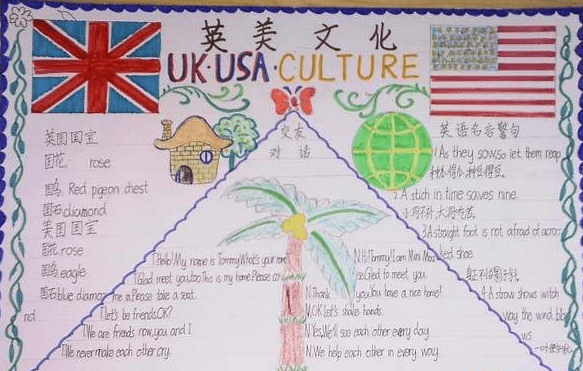 英美文化
UK·USA·CULTURE
英国国宝
国花 rose
国鸟 Red pigeon chest
国石 diamond
美国国宝
国花 rose
国鸟 eagle
国石 blue diamond
交友
对话
T.Hello! My name is Tommy What's your name
T.Glad meet you,too This is my home Please co
me in.Please take a seat.
T.let's be friends,OK?
T.We are friends now,you and I
T.We never make each other cry.
N.Hi!Tommy!I am Mini
Glad to meet you.
N.Thank you.You have a nice home!
N.OK Let's shake hands.
N.Yes,We'll see each other every day
N.We help each other in every way.
英语名言警句
1 As they sow,so let them reap
种瓜得瓜,种豆得豆。
2 A stich in time saves nine.
3 A straight foot is not afraid of a crooo
ked shoe
4 A straw shows witch
way the wind blo
ws